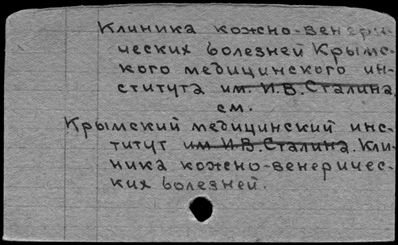 Клиника кожно-венери-
ческих болезней Крымс-
кого медицинского ин-
ститута им. И.В.Сталина
см.
Крымский медицинский инс-
титут им. И.В.Сталина. Кли-
ника кожно-венеричес-
ких болезней.